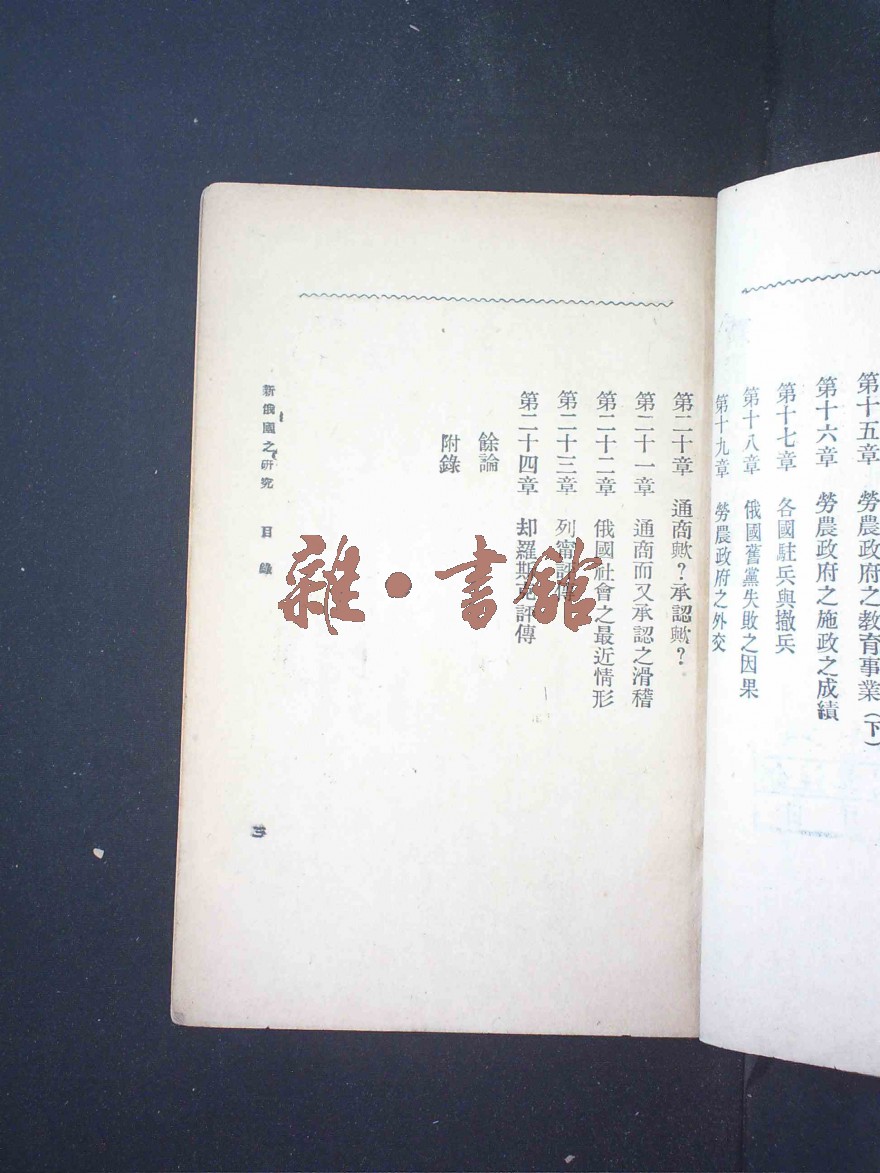 第十五章　勞農政府之教育事業（下）
第十六章　勞農政府之施政之成績
第十七章　各國駐兵與撤兵
第十八章　俄國舊黨失敗之因果
第十九章　勞農政府之外交
第二十章　通商歟？承認歟？
第二十一章　通商而又承認之滑稽
第二十二章　俄國社會之最近情形
第二十三章　列甯評傳
第二十四章　却羅斯克評傳
餘論
附錄
新俄國之研究　目錄
三
雜·書館